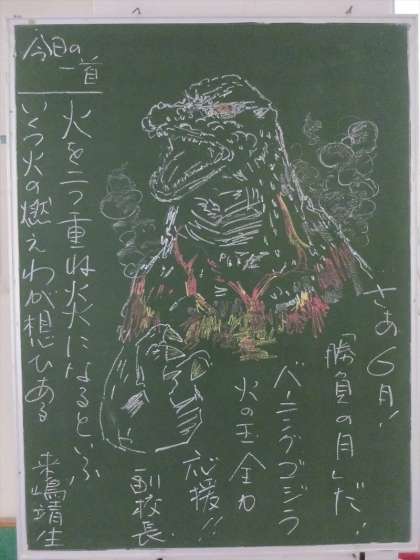 さあ6月!!
「勝負の月」だ!
バーニングゴジラ
火の玉全力
応援!!
副校長
今日の
一首
火を二つ重ね炎になるといふ
いくつ火の燃えわが想ひある 来嶋靖生